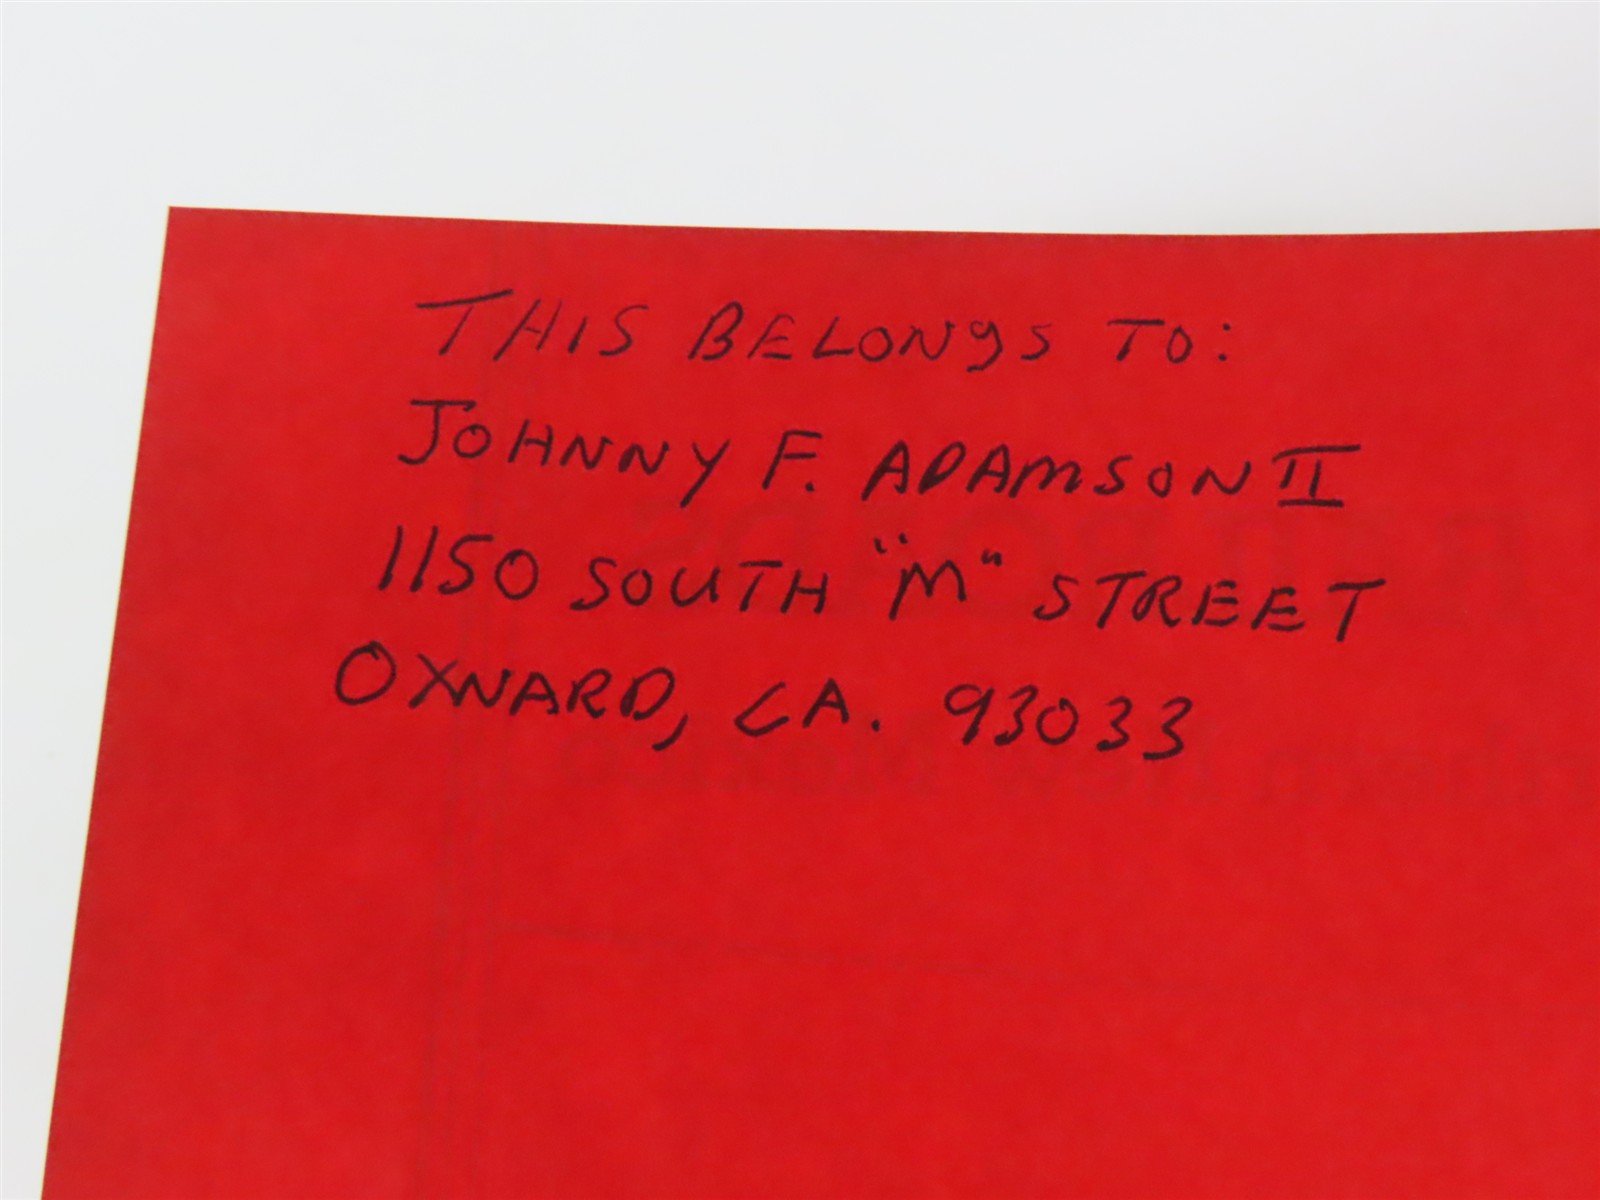 THIS BELONgS TO:
JOHNNY F. ADAMSON II
1150 SOUTH "M" STREET
OXNARD, CA. 93033